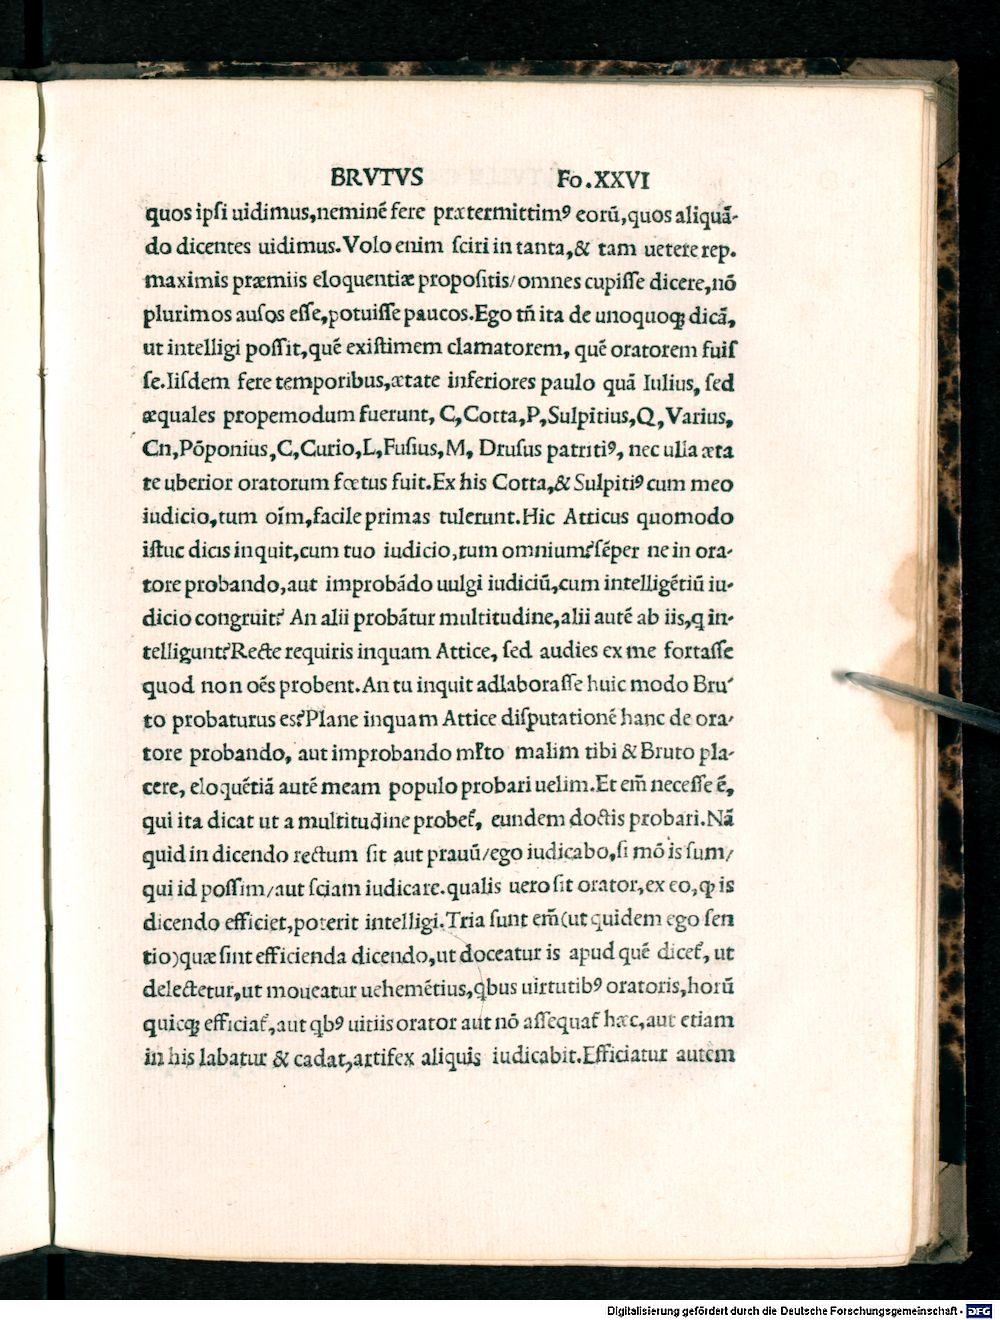 BRVTVS Fo.XXVI
quos ipsi uidimus,neminē fere prætermittimꝰ eorū,quos aliquā-
do dicentes uidimus.Volo enim sciri in tanta,& tam uetere rep.
maximis præmiis eloquentiæ propositis/omnes cupisse dicere,nō
plurimos ausos esse,potuisse paucos.Ego tñ ita de unoquoqꝫ dicā,
ut intelligi possit,quē existimem clamatorem, quē oratorem fuis
se.Iisdem fere temporibus,ætate inferiores paulo quā Iulius, sed
æquales propemodum fuerunt, C,Cotta,P,Sulpitius,Q,Varius,
Cn,Pōponius,C,Curio,L,Fusius,M, Drusus patritiꝰ, nec ulla æta
te uberior oratorum fœtus fuit.Ex his Cotta,& Sulpitiꝰ cum meo
iudicio,tum oīm,facile primas tulerunt.Hic Atticus quomodo
istuc dicis inquit,cum tuo iudicio,tum omnium?sēper ne in ora-
tore probando,aut improbādo uulgi iudiciū,cum intelligētiū iu-
dicio congruit? An alii probātur multitudine,alii autē ab iis,q in-
telligunt?Recte requiris inquam Attice, sed audies ex me fortasse
quod non oēs probent.An tu inquit adlaborasse huic modo Bru-
to probaturus es?Plane inquam Attice disputationē hanc de ora-
tore probando, aut improbando mľto malim tibi & Bruto pla-
cere, eloquētiā autē meam populo probari uelim.Et em̄ necesse ē,
qui ita dicat ut a multitudine probet᷑, eundem doctis probari.Nā
quid in dicendo rectum sit aut prauū/ego iudicabo,si mō is sum/
qui id possim/aut sciam iudicare.qualis uero sit orator,ex eo,ꝙ is
dicendo efficiet,poterit intelligi.Tria sunt em̄(ut quidem ego sen
tio)quæ sint efficienda dicendo,ut doceatur is apud quē dicet᷑, ut
delectetur,ut moueatur uehemētius,qbus uirtutibꝰ oratoris,horū
quicqꝫ efficiat᷑,aut qbꝰ uitiis orator aut nō assequat᷑ hæc,aut etiam
in his labatur & cadat,artifex aliquis iudicabit.Efficiatur autem
Digitalisierung gefördert durch die Deutsche Forschungsgemeinschaft - DFG